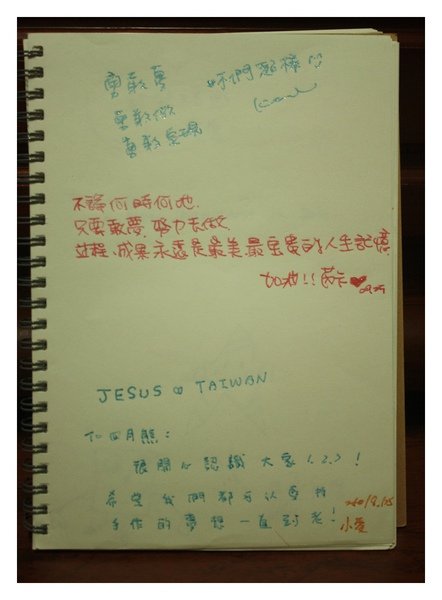 勇敢夢 你們超棒
勇敢做
勇敢實現
不論何時何地
只要敢夢,努力去做
過程,成果永遠是最美,最寶貴的人生記憶
加油!!
JESUS ∞ TAIWAN
To 四月熊:
很開心認識大家1.2.3!
希望我們都可以堅持
手作的夢想一直到老!
小愛